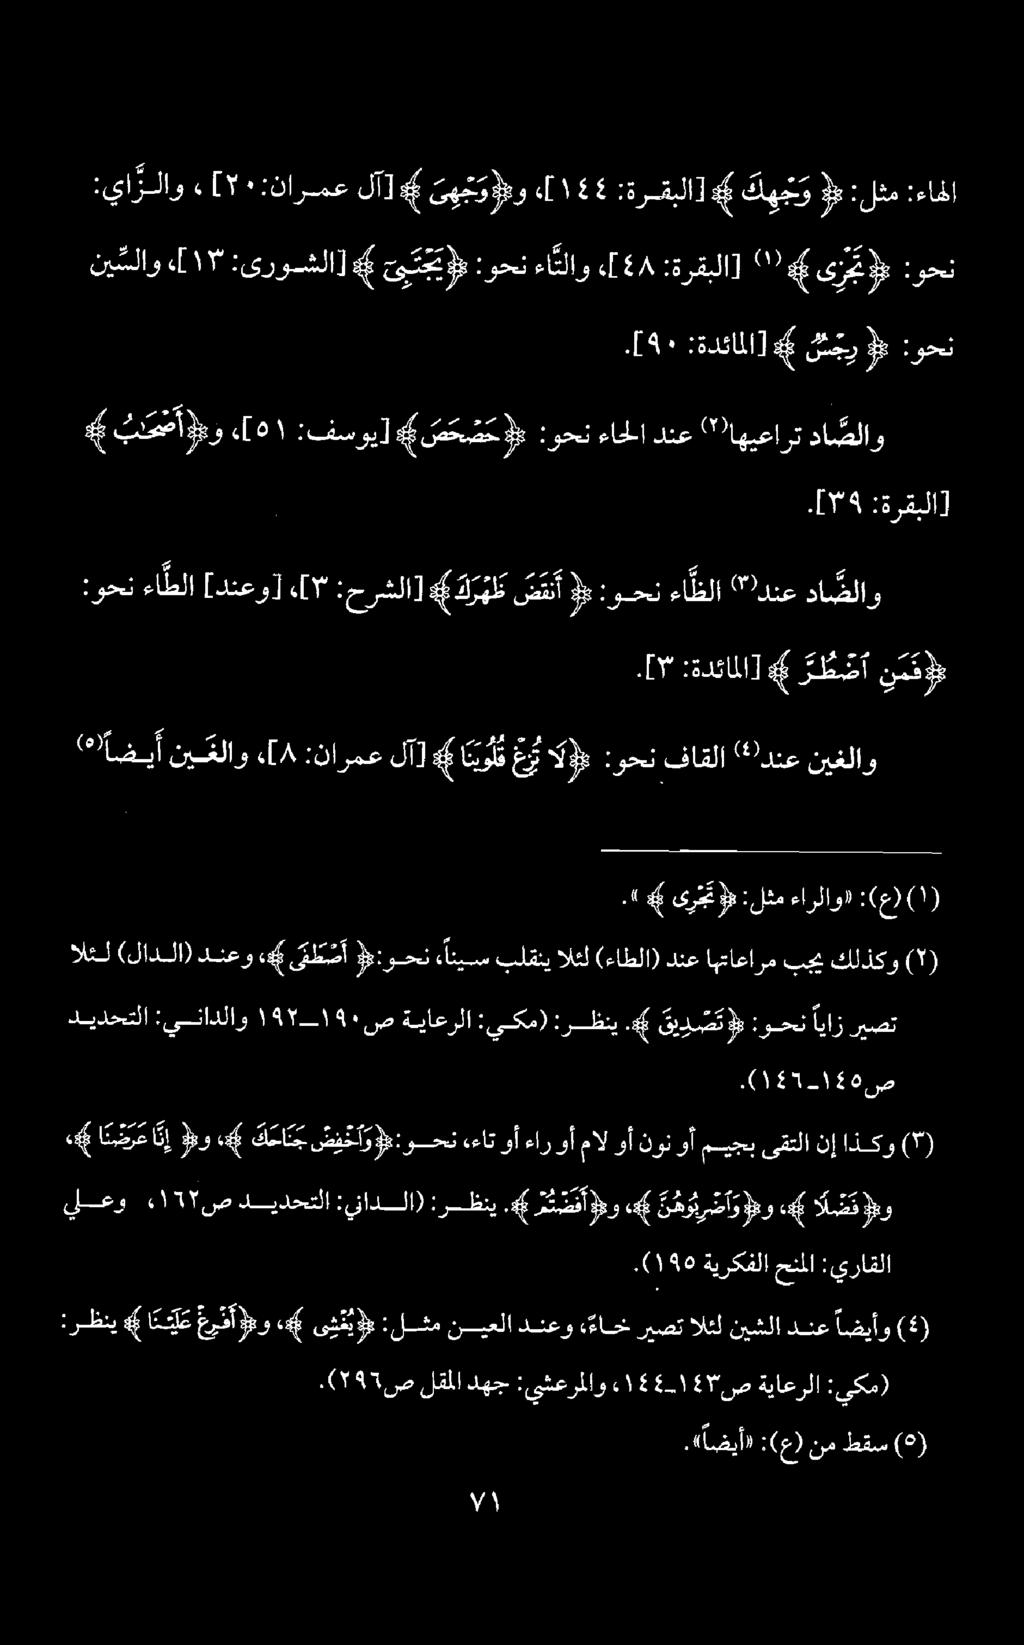 الهاء: مثل: ﴿ وَجْهِكَ ﴾ [البقرة: ١٤٤]، و﴿وَجْهِىَ ﴾ [آل عمران: ٢٠]، والزَّاي:
نحو: ﴿تَجْزِى ﴾ (١) [البقرة: ٤٨]، والتَّاء نحو: ﴿يَجْتَبِىٓ ﴾ [الشورى: ١٣]، والسِّين
نحو: ﴿ رِجْسٌ ﴾ [المائدة: ٩٠].
والصَّاد تراعيها(٢) عند الحاء نحو: ﴿حَصْحَصَ﴾ [يوسف: ٥١]، و﴿أَصْحَٰبُ ﴾
[البقرة: ٣٩].
والضَّاد عند(٣) الظَّاء نحو: ﴿ أَنقَضَ ظَهْرَكَ﴾ [الشرح: ٣]، [وعند] الطَّاء نحو:
﴿فَمَنِ ٱضْطُرَّ ﴾ [المائدة: ٣].
والغين عند(٤) القاف نحو: ﴿لَا تُزِغْ قُلُوبَنَا ﴾ [آل عمران: ٨]، والغَين أَيضاً(٥)
(١) (ع): «والراء مثل: ﴿تَجْرِى ﴾ ».
(٢) وكذلك يجب مراعاتها عند (الطاء) لئلا ينقلب سيناً، نحو: ﴿ أَصْطَفَى ﴾، وعند (الدال) لئلا
تصير زاياً نحو: ﴿تَصْدِيقَ ﴾. ينظر: (مكي: الرعاية ص١٩٠ـ١٩٢ والداني: التحديد
ص١٤٥ـ١٤٦).
(٣) وكذا إن التقى بجيم أو نون أو لام أو راء أو تاء، نحو: ﴿وَٱخْفِضْ جَنَاحَكَ ﴾، و﴿ إِنَّا عَرَضْنَا ﴾،
و﴿فَضْلًا ﴾، و﴿وَٱضْرِبُوهُنَّ ﴾، و﴿أَفَضْتُم ﴾. ينظر: (الداني: التحديد ص١٦٢، وعلي
القاري: المنح الفكرية ١٩٥).
(٤) وأيضاً عند الشين لئلا تصير خاءً، وعند العين مثل: ﴿يَغْشَى ﴾، و﴿أَفْرِغْ عَلَيْنَا ﴾ ينظر:
(مكي: الرعاية ص١٤٣ـ١٤٤، والمرعشي: جهد المقل ص٢٩٦).
(٥) سقط من (ع): «أيضاً».
٧١